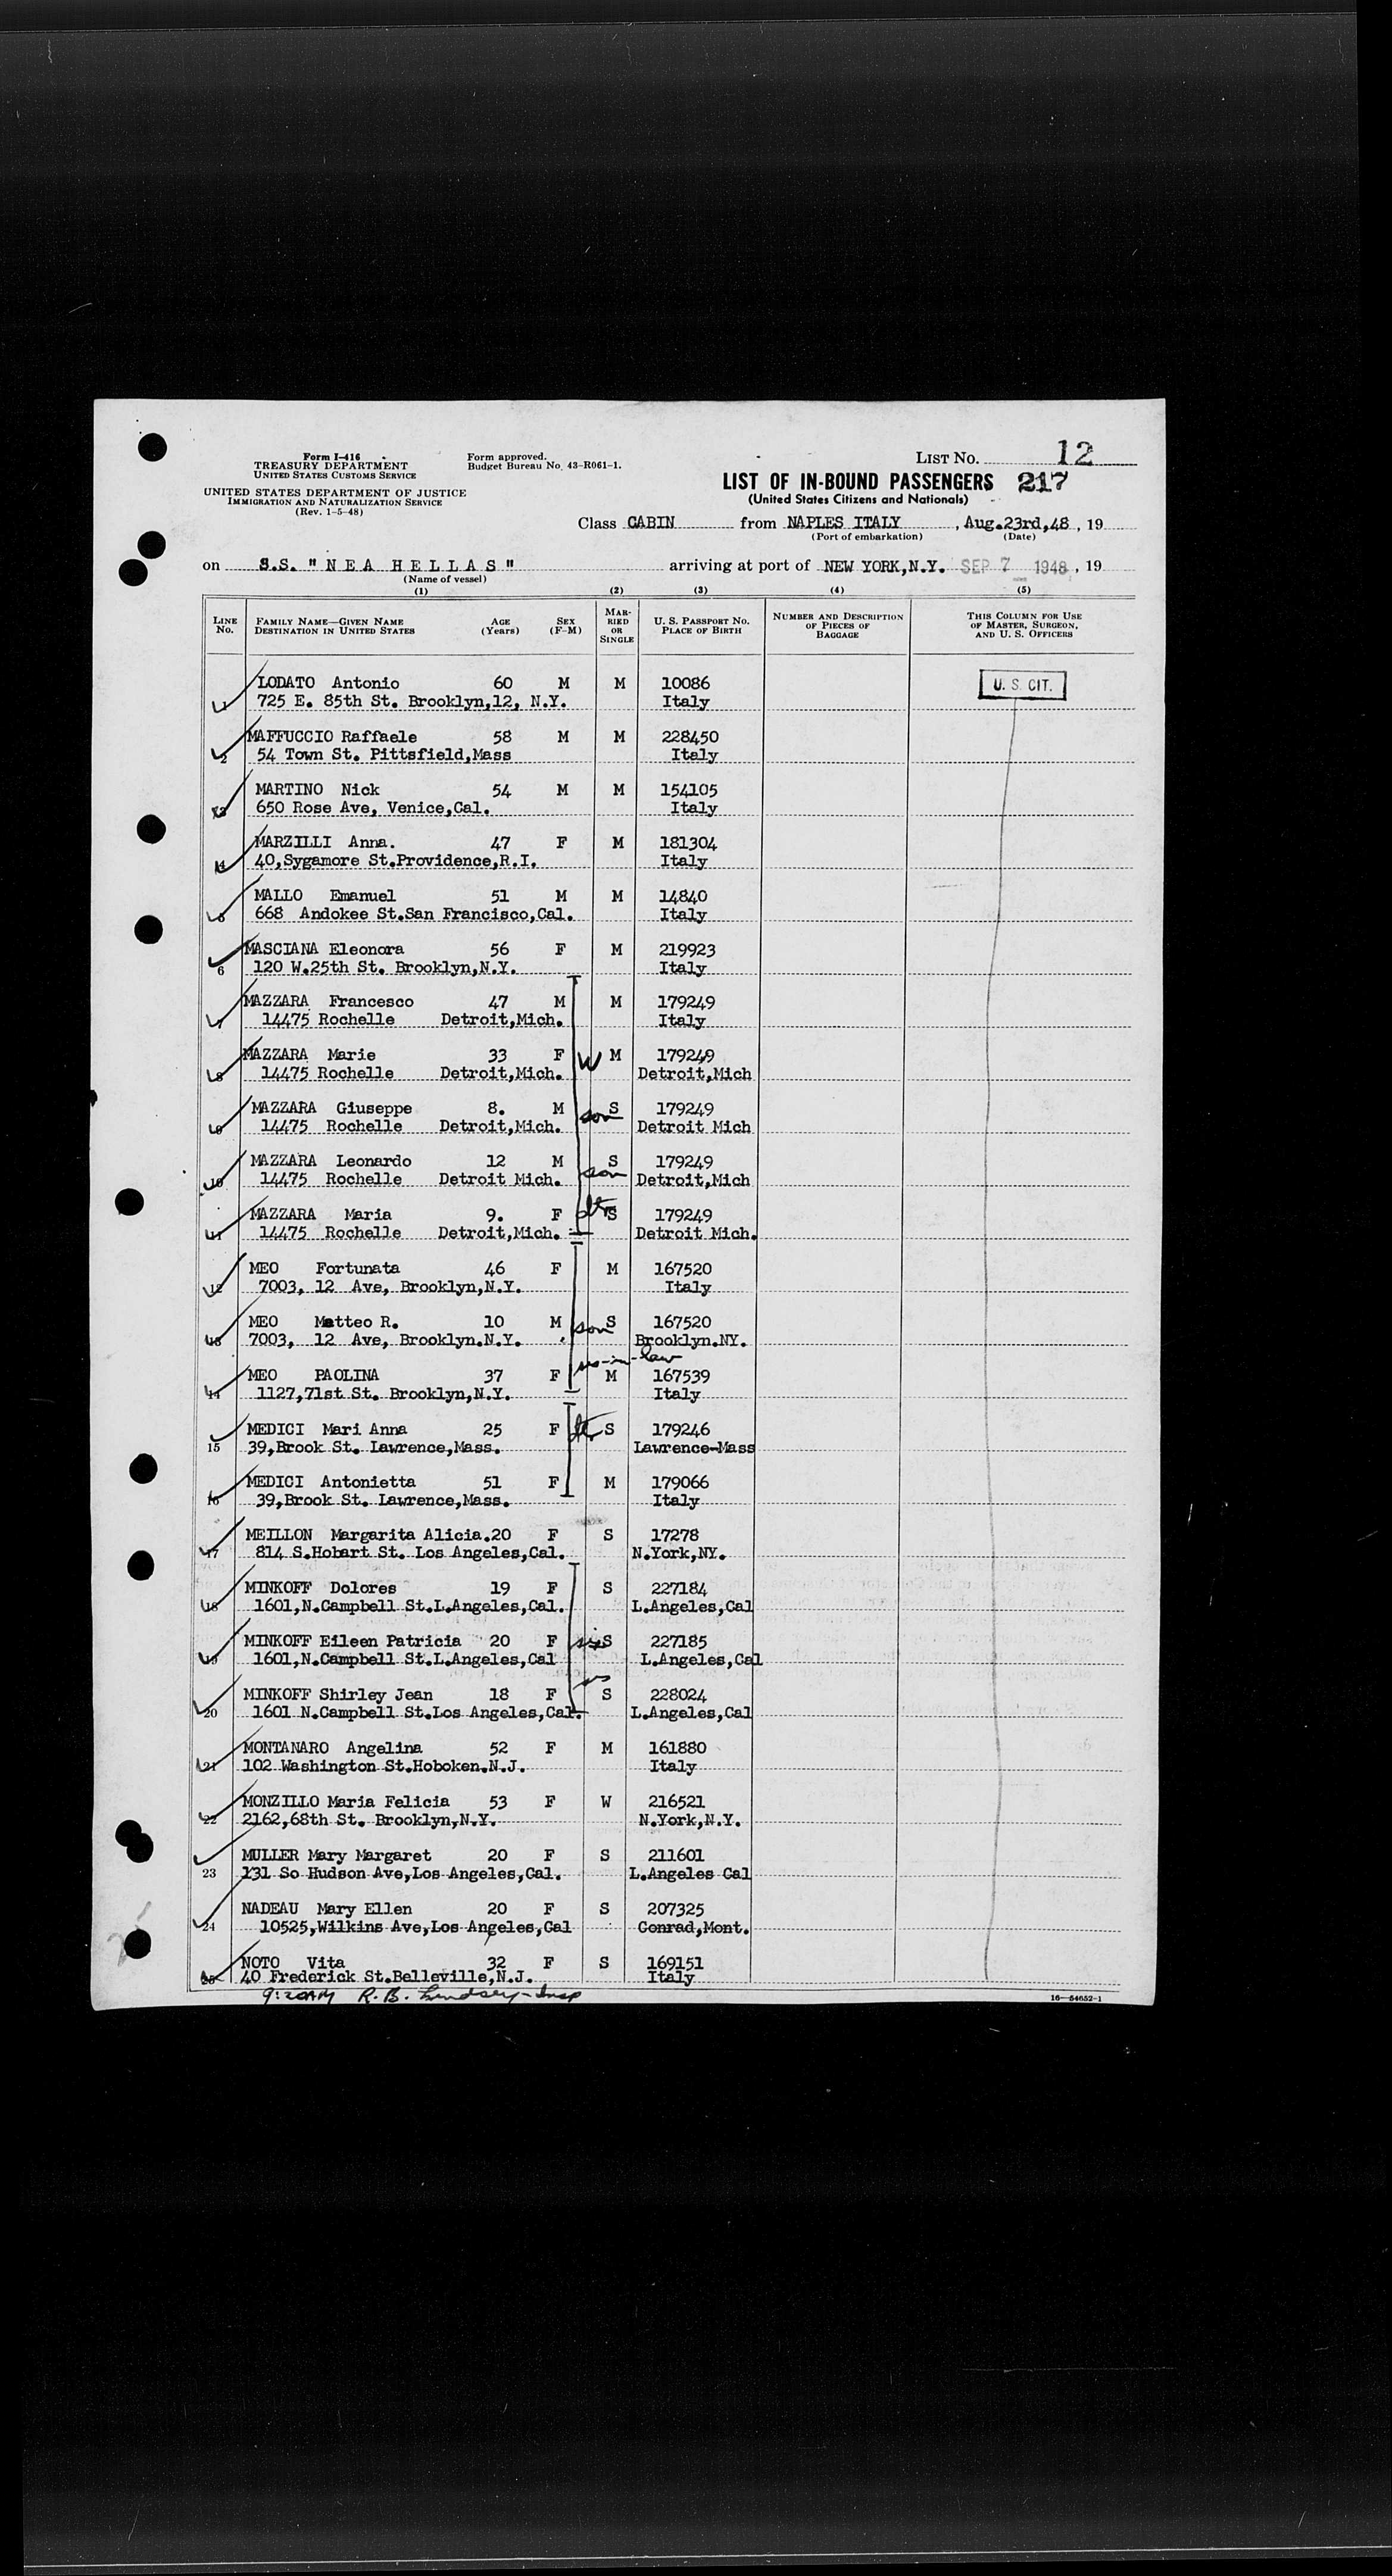 Form I-416
TREASURY DEPARTMENT
UNITED STATES CUSTOMS SERVICE
Form approved.
Budget Bureau No. 43-R061-1.
LIST NO. 12
UNITED STATES DEPARTMENT OF JUSTICE
IMMIGRATION AND NATURALIZATION SERVICE
(Rev. 1-5-48)
LIST OF IN-BOUND PASSENGERS 217
(United States Citizens and Nationals)
Class CABIN from NAPLES ITALY, Aug.23rd,48, 19
(Port of embarkation) (Date)
on S.S. "NEA HELLAS" arriving at port of NEW YORK,N.Y. SEP 7 1948, 19
(Name of vessel)
(1) (2) (3) (4) (5)
LINE NO. FAMILY NAME—GIVEN NAME DESTINATION IN UNITED STATES AGE (Years) SEX (F-M) MARRIED OR SINGLE U. S. PASSPORT NO. PLACE OF BIRTH NUMBER AND DESCRIPTION OF PIECES OF BAGGAGE THIS COLUMN FOR USE OF MASTER, SURGEON, AND U. S. OFFICERS
LODATO Antonio 60 M M 10086 U. S. CIT.
1 725 E. 85th St. Brooklyn,12, N.Y. Italy
MAFFUCCIO Raffaele 58 M M 228450
2 54 Town St. Pittsfield,Mass Italy
MARTINO Nick 54 M M 154105
3 650 Rose Ave, Venice,Cal. Italy
MARZILLI Anna. 47 F M 181304
4 40,Sygamore St.Providence,R.I. Italy
MALLO Emanuel 51 M M 14840
5 668 Andokee St.San Francisco,Cal. Italy
MASCIANA Eleonora 56 F M 219923
6 120 W.25th St. Brooklyn,N.Y. Italy
MAZZARA Francesco 47 M M 179249
7 14475 Rochelle Detroit,Mich. Italy
MAZZARA Marie 33 F W M 179249
8 14475 Rochelle Detroit,Mich. Detroit,Mich
MAZZARA Giuseppe 8. M son S 179249
9 14475 Rochelle Detroit,Mich. Detroit Mich
MAZZARA Leonardo 12 M son S 179249
10 14475 Rochelle Detroit Mich. Detroit,Mich
MAZZARA Maria 9. F dtr S 179249
11 14475 Rochelle Detroit,Mich. Detroit Mich.
MEO Fortunata 46 F M 167520
12 7003, 12 Ave, Brooklyn,N.Y. Italy
MEO Matteo R. 10 M son S 167520
13 7003, 12 Ave, Brooklyn.N.Y. Brooklyn.NY.
sis-in-law
MEO PAOLINA 37 F M 167539
14 1127,71st St. Brooklyn,N.Y. Italy
MEDICI Mari Anna 25 F dtr S 179246
15 39,Brook St. Lawrence,Mass. Lawrence-Mass
MEDICI Antonietta 51 F M 179066
16 39,Brook St. Lawrence,Mass. Italy
MEILLON Margarita Alicia.20 F S 17278
17 814 S.Hobart St. Los Angeles,Cal. N.York,NY.
MINKOFF Dolores 19 F S 227184
18 1601,N.Campbell St.L.Angeles,Cal. L.Angeles,Cal
MINKOFF Eileen Patricia 20 F sis S 227185
19 1601,N.Campbell St.L.Angeles,Cal L.Angeles,Cal
MINKOFF Shirley Jean 18 F sis S 228024
20 1601 N.Campbell St.Los Angeles,Cal. L.Angeles,Cal
MONTANARO Angelina 52 F M 161880
21 102 Washington St.Hoboken.N.J. Italy
MONZILLO Maria Felicia 53 F W 216521
22 2162,68th St. Brooklyn,N.Y. N.York,N.Y.
MULLER Mary Margaret 20 F S 211601
23 131 So Hudson Ave,Los Angeles,Cal. L.Angeles Cal
NADEAU Mary Ellen 20 F S 207325
24 10525,Wilkins Ave,Los Angeles,Cal Conrad,Mont.
NOTO Vita 32 F S 169151
25 40 Frederick St.Belleville,N.J. Italy
9:20AM R. B. Lindsey-Insp
16—54652-1